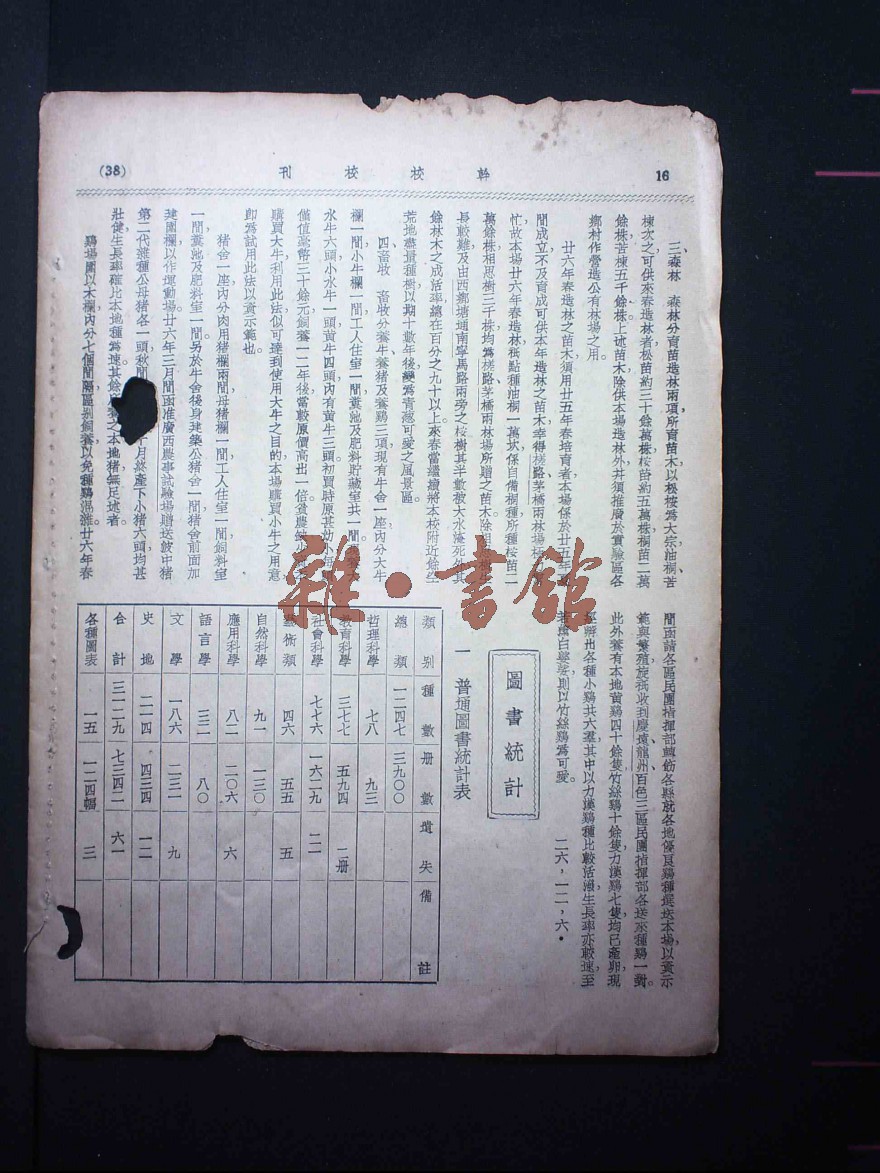 16
幹校校刊
(38)
三、森林　森林分育苗造林兩項，所育苗木以桉樓爲大宗，油桐、苦
棟次之，可供來春造林者松苗約三十餘萬株，桉苗約五萬株，桐苗二萬
餘株，苦棟五千餘株。上述苗木除供本場造林外，幷須推廣於實驗區各
鄉村作營造公有林場之用。
廿六年春造林之苗木，須用廿五年春培育者，本場係於廿五年
間成立，不及育成可供本年造林之苗木，幸得槎路、茅橋兩林場
忙，故本場廿六年春造林，秖點種油桐一萬坎，係自備桐種，所種桉苗二
萬餘株，相思樹三千株，均爲槎路、茅橋兩林場所贈之苗木，除相思樹生
長較難及由西鄉塘通南寧馬路兩旁之桉樹，其半數被大水淹死外，其
餘林木之成活率，總在百分之九十以上。來春當繼續將本校附近餘坐
荒地，盡量種樹，以期十數年後，變爲靑葱可愛之風景區。
四畜牧　畜牧分養牛、養猪及養鷄三項，現有牛舍一座，內分大牛
欄一間，小牛欄一間，工人住室一間，糞池及肥料貯藏室共一間，
水牛六頭，小水牛一頭，黃牛四頭，內有黃牛三頭，初買時原甚幼小，每頭
價值毫幣三十餘元，飼養一二年後，當較原價高出一倍。貧農缺少
購買大牛，利用此法，似可達到使用大牛之目的，本場購買小牛之用意，
卽爲試用此法，以資示範也。
猪舍一座，內分肉用猪欄兩間，母猪欄一間，工人住室一間，飼料室
一間，糞池及肥料室一間。另於牛舍後身建築公猪舍一間，猪舍前面加
建圍欄，以作運動場。廿六年三月間函准廣西農事試驗場贈送波中猪
第二代雜種公母猪各一頭，秋間
十月終，產下小猪六頭，均甚
壯健，生長率確比本地種爲速。其餘
之本地猪，無足述者。
鷄場圍以木欄，內分七個間隔，區別飼養，以免種鷄混雜。廿六年春
間函請各區民團指揮部轉飭各縣就各地優良鷄種選送本場，以資示
範與繁殖，旋秖收到慶遠、龍州、百色三區民團指揮部各送來種鷄一對。
此外養有本地黃鷄四十餘隻，竹絲鷄十餘隻，力漢鷄七隻，均已產卵，現
經孵出各種小鷄共六羣，其中以力漢鷄種比較活潑，生長率亦較速，至
若雪白婆娑，則以竹絲鷄爲可愛。
二六，一二，六．
圖書統計
一　普通圖書統計表
類別　種數　册數　遺失　備註
總類　一二四七　三九〇〇
哲理科學　七八　九三
教育科學　三七七　五九四　二册
社會科學　七七六　一六二九　二一
藝術類　四六　五五　五
自然科學　九一　一三〇
應用科學　八二　二〇六　六
語言學　三二　八〇
文學　一八六　二三一　九
史地　二一四　四三四　一二
合計　三一二九　七三四二　六一
各種圖表　一五　一二四幅　三
雜·書館